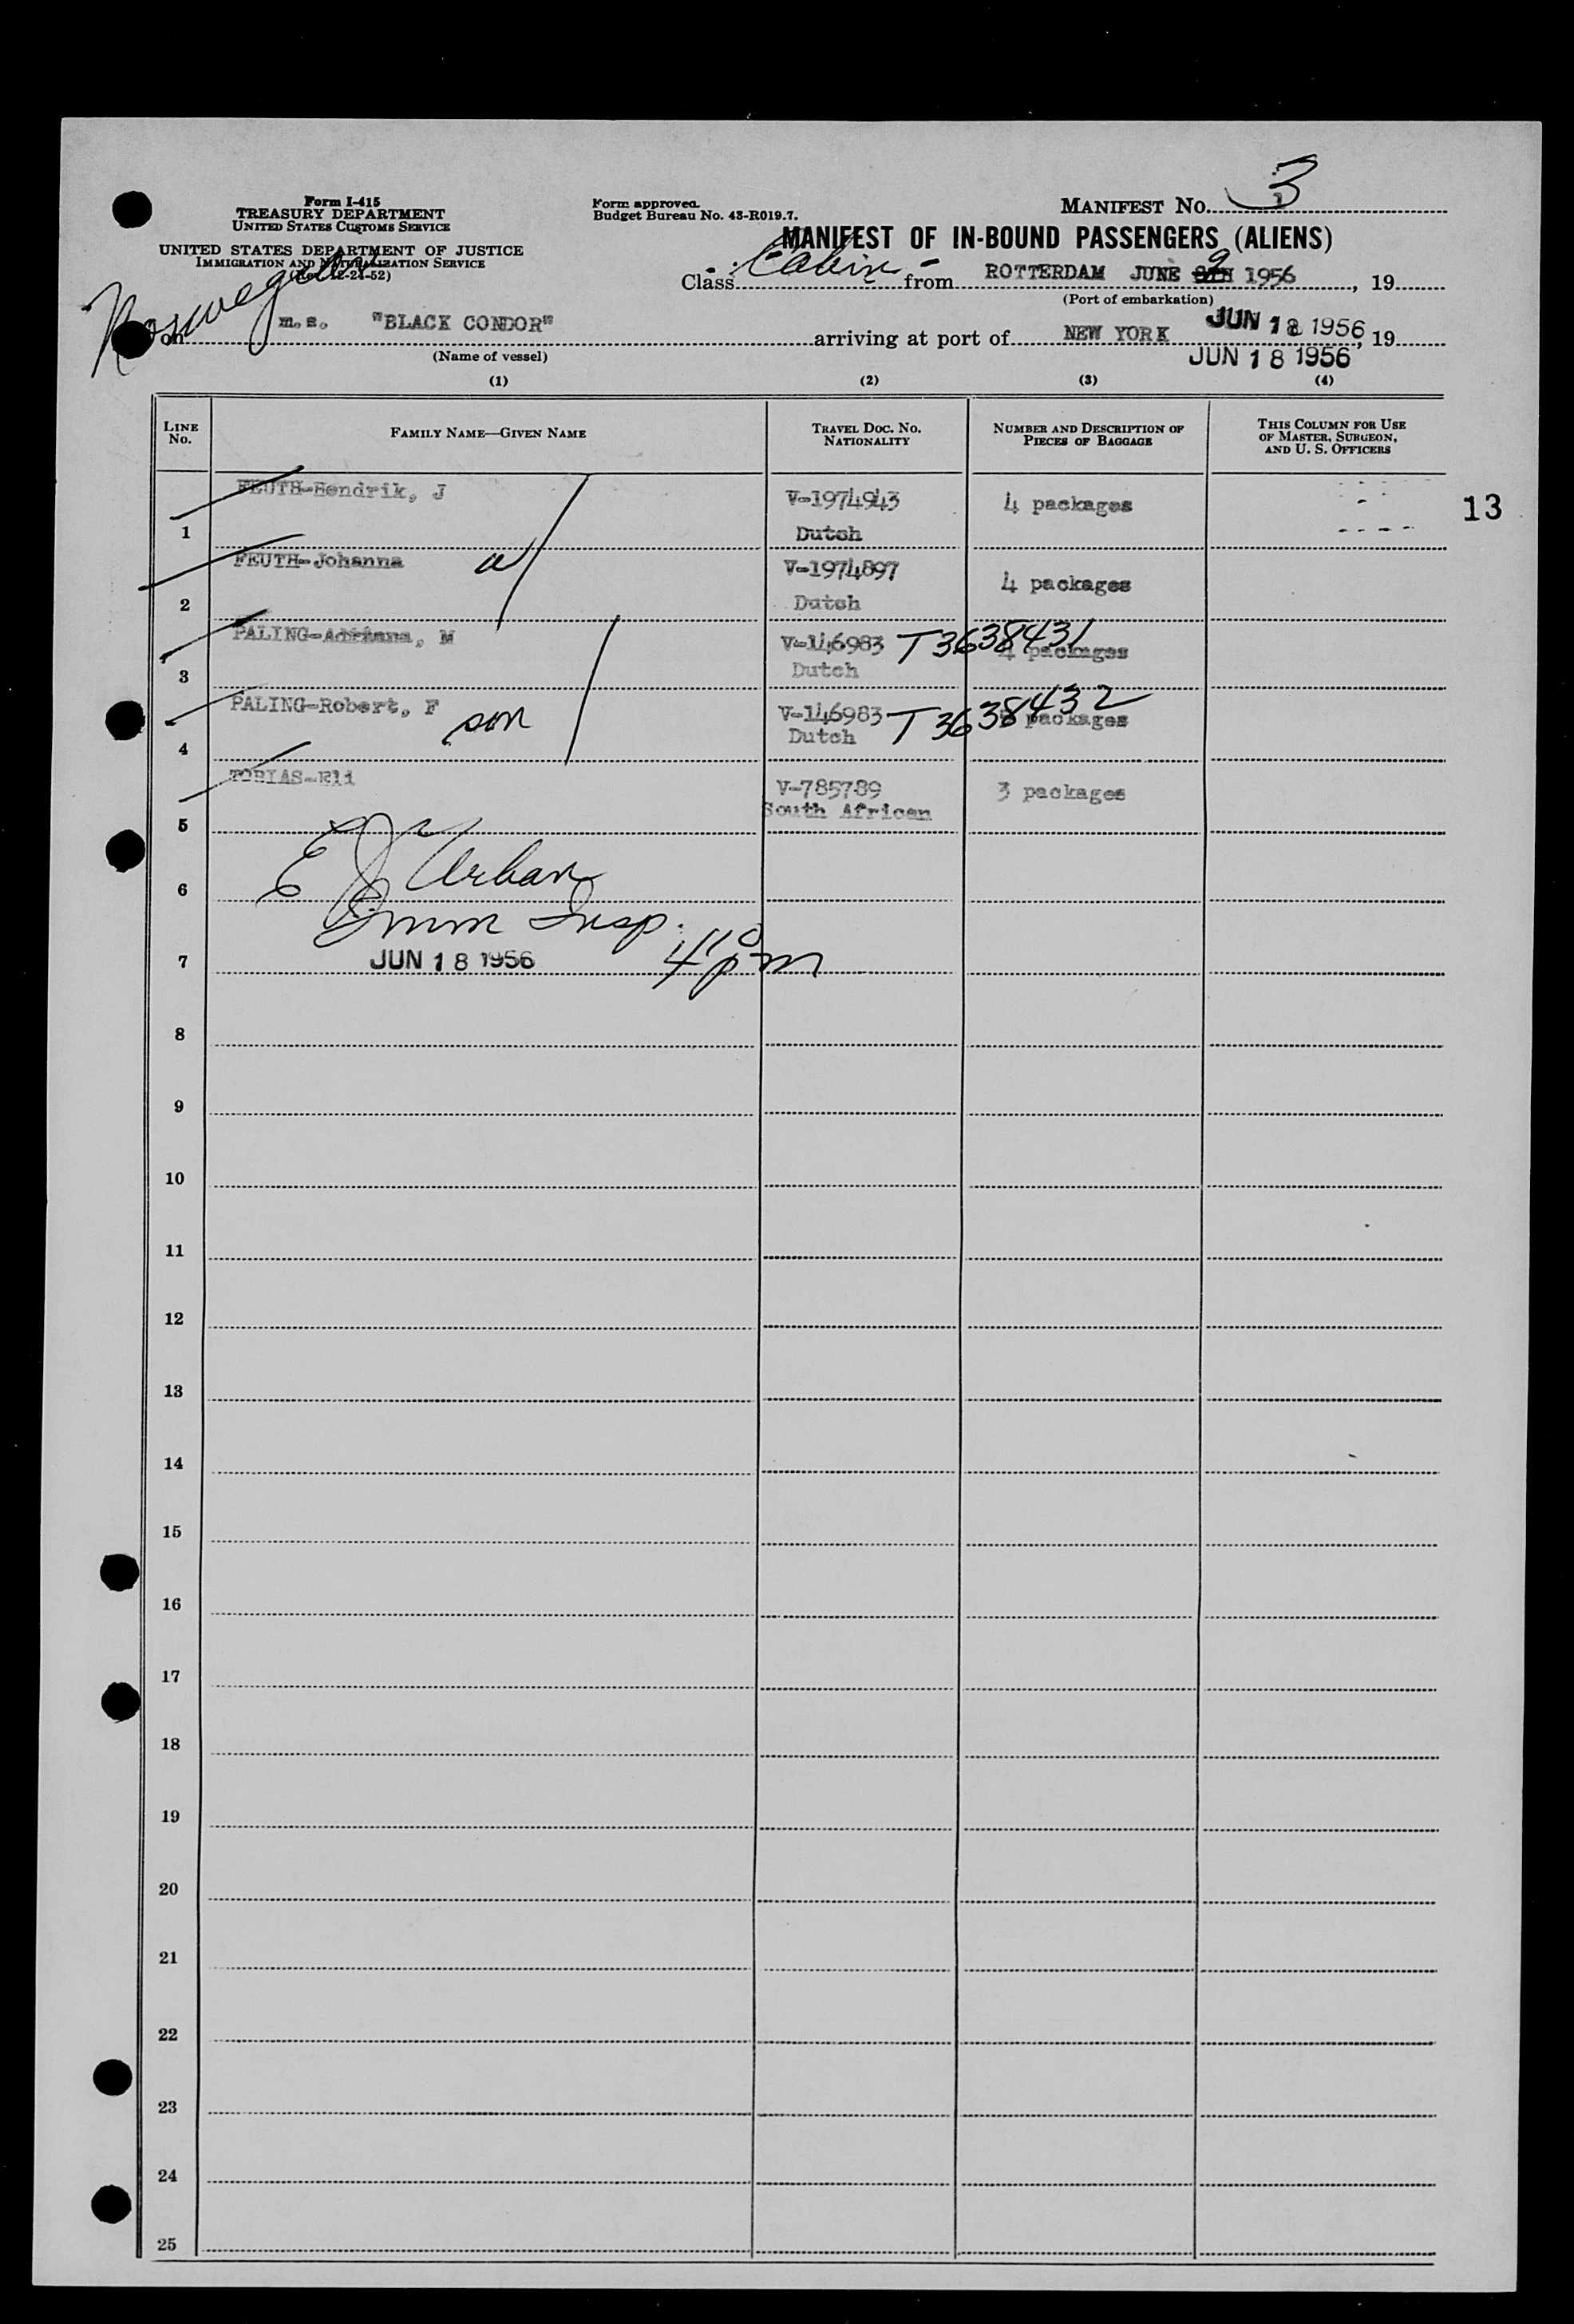 Form I-415
TREASURY DEPARTMENT
UNITED STATES CUSTOMS SERVICE
UNITED STATES DEPARTMENT OF JUSTICE
IMMIGRATION AND NATURALIZATION SERVICE
(Rev. 12-24-52)
Form approved.
Budget Bureau No. 43-R019.7.
MANIFEST No. 3
MANIFEST OF IN-BOUND PASSENGERS (ALIENS)
Class Cabin from ROTTERDAM JUNE 9 1956, 19
(Port of embarkation)
Norwegian
on m.s. "BLACK CONDOR" arriving at port of NEW YORK JUN 18 1956, 19
(Name of vessel) JUN 18 1956
(1) (2) (3) (4)
LINE No. FAMILY NAME—GIVEN NAME TRAVEL DOC. No. NATIONALITY NUMBER AND DESCRIPTION OF PIECES OF BAGGAGE THIS COLUMN FOR USE OF MASTER, SURGEON, AND U. S. OFFICERS
FEUTH-Hendrik, J V-1974943 4 packages 13
1 Dutch
FEUTH-Johanna w V-1974897 4 packages
2 Dutch
PALING-Adriana, M V-146983 T3638431 4 packages
3 Dutch
PALING-Robert, F son V-146983 T3638432 packages
4 Dutch
TOBIAS-Eli V-785789 3 packages
5 South African
E J Urban
6
Imm Insp.
7 JUN 18 1956 4 10 pm
8
9
10
11
12
13
14
15
16
17
18
19
20
21
22
23
24
25